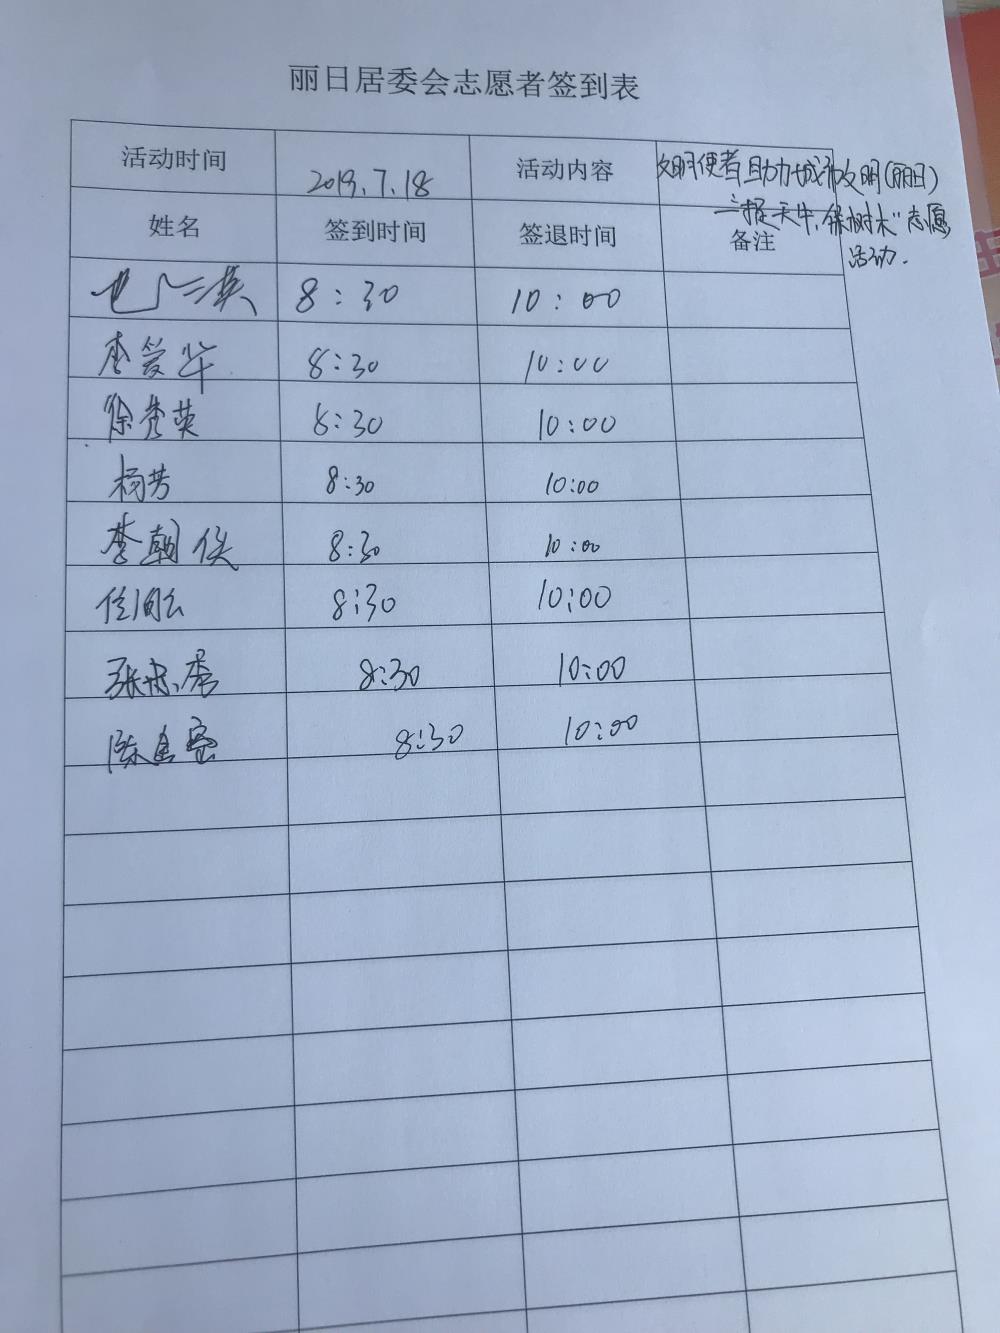 丽日居委会志愿者签到表
活动时间 2019.7.18 活动内容 文明使者助力城市文明(丽日)
—"捉天牛,保树木"志愿
活动.
姓名 签到时间 签退时间 备注
8:30 10:00
李爱华 8:30 10:00
徐秀英 8:30 10:00
杨芳 8:30 10:00
李朝侠 8:30 10:00
8:30 10:00
8:30 10:00
8:30 10:00